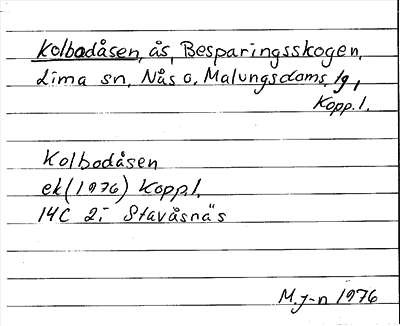 Kolbodåsen, ås, Besparingsskogen,
Lima sn, Nås o. Malungs doms. lg,
Kopp.l.
Kolbodåsen
ek (1976) Kopp.l.
14C 2:- Stavåsnäs
M.J-n 1976